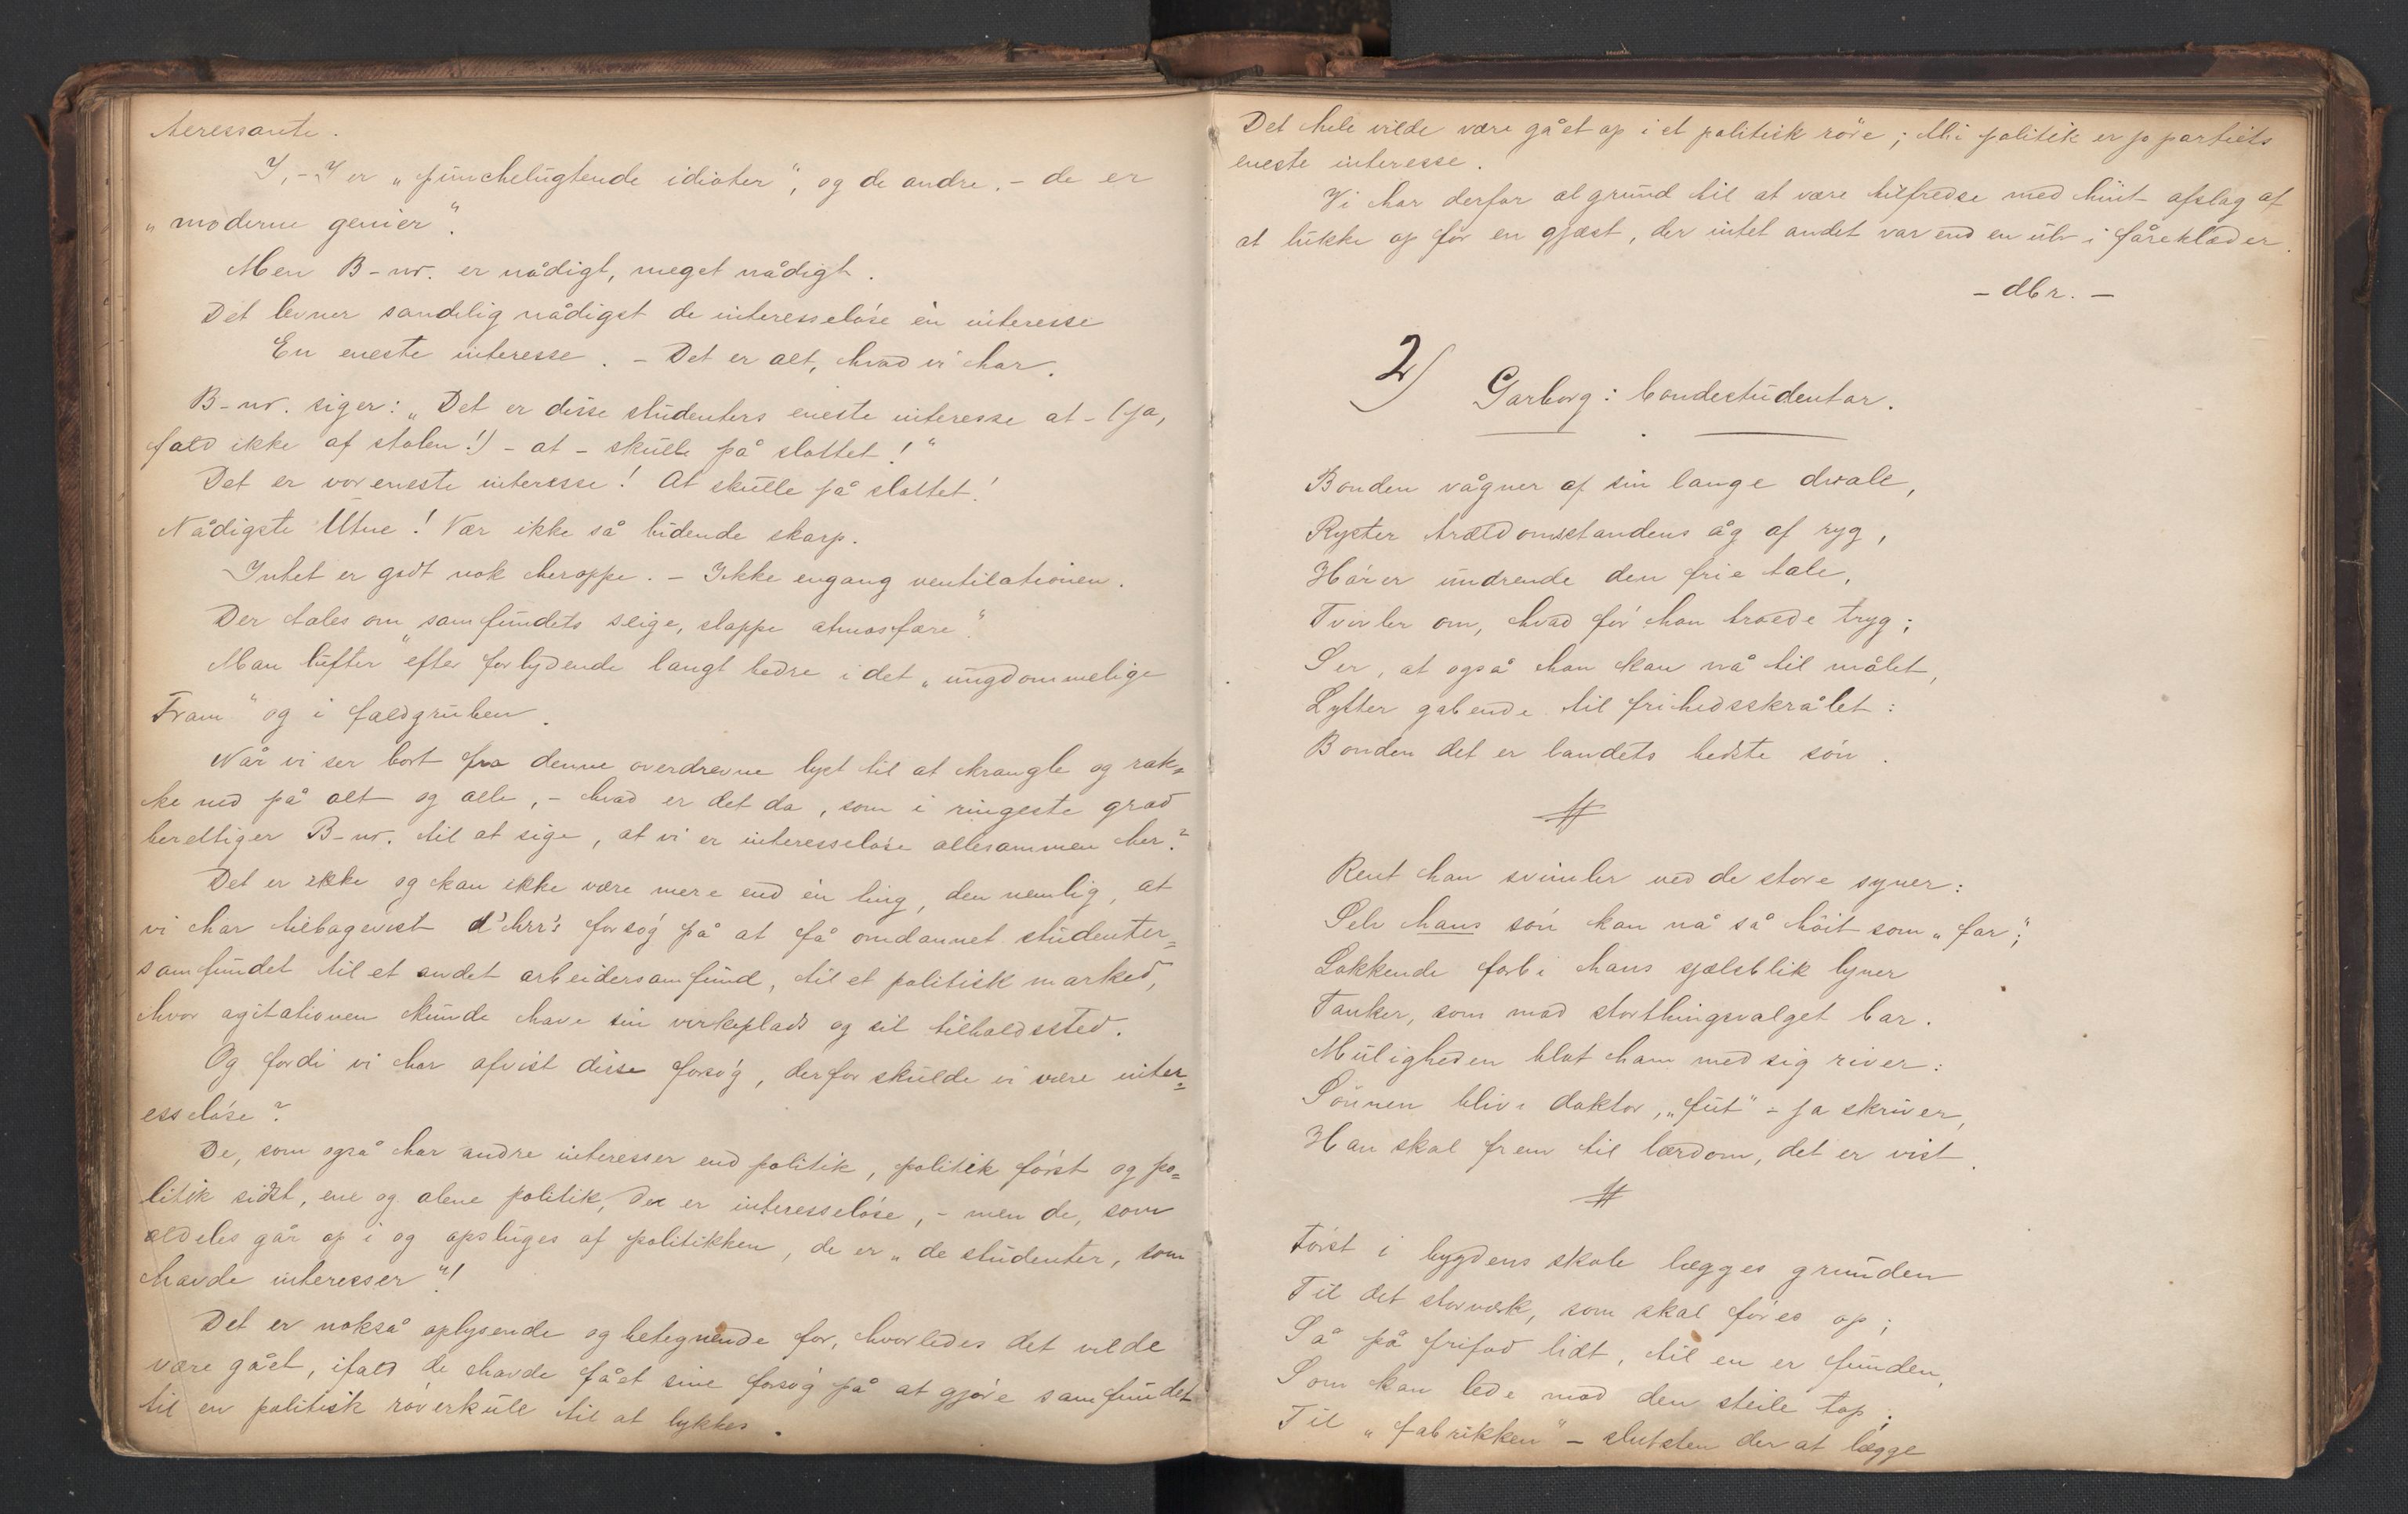 teressante.
I, - I er „punchelugtende idioter", og de andre, - de er
„moderne genier".
Men B-nr. er nådigt, meget nådigt.
Det levner sandelig nådigst de interesseløse én interesse
En eneste interesse. - Det er alt, hvad vi har.
B-nr. siger: „Det er disse studenters eneste interesse at - (ja,
fald ikke af stolen!) - at - skulle på slottet!"
Det er vor eneste interesse! At skulle på slottet!
Nådigste Utue! Vær ikke så bidende skarp.
Intet er godt nok heroppe. - Ikke engang ventilationen.
Der tales om „samfundets seige, slappe atmosfære".
Man lufter efter forlydende langt bedre i det „ungdommelige
Fram" og i faldgruben.
Når vi ser bort fra denne overdrevne lyst til at krangle og rak-
ke ned på alt og alle, - hvad er det da, som i ringeste grad
berettiger B-nr. til at sige, at vi er interesseløse allesammen her?
Det er ikke og kan ikke være mere end én ting, den nemlig, at
vi har tilbagevist d'hrr's forsøg på at få omdannet studenter=
samfundet til et andet arbeidersamfund, til et politisk marked,
hvor agitationen kunde have sin virkeplads og sit tilholdssted.
Og fordi vi har afvist disse forsøg, derfor skulde vi være inter=
esseløse?
De, som også har andre interesser end politik, politik først og po=
litik sidst, ene og alene politik, de er interesseløse, - men de, som
aldeles går op i og opsluges af politikken, de er „de studenter, som
havde interesser"!
Det er nokså oplysende og betegnende for, hvorledes det vilde
være gået, ifald de havde fået sine forsøg på at gjøre samfundet
til en politisk røverkule til at lykkes.
Det hele vilde være gået op i et politisk røre; thi politik er jo partiets
eneste interesse.
Vi har derfor al grund til at være tilfredse med hint afslag af
at lukke op for en gjæst, der intet andet var end en ulv i fåreklæder.
- dbr. -
2) Garborg: bondestudentar.
Bonden vågner af sin lange dvale,
Ryster trældomsstandens åg af ryg,
Hører undrende den frie tale,
Tvivler om, hvad før han troede tryg;
Ser, at også han kan nå til målet,
Lytter gabende til frihedsskrålet:
Bonden det er landets bedste søn.
#
Rent han svimler ved de store syner:
Selv hans søn kan nå så høit som „far";
Lokkende forbi hans sjælsblik lyner
Tanker, som mod storthingsvalget bar.
Muligheden blot ham med sig river:
Sønnen bliv doktor, „fut" - ja skriver,
Han skal frem til lærdom, det er vist.
#
Først i bygdens skole lægges grunden
Til det storværk, som skal føres op;
Så på frifod lidt, til en er funden,
Som kan lede mod den steile top;
Til „fabrikken" - slutsten der at lægge